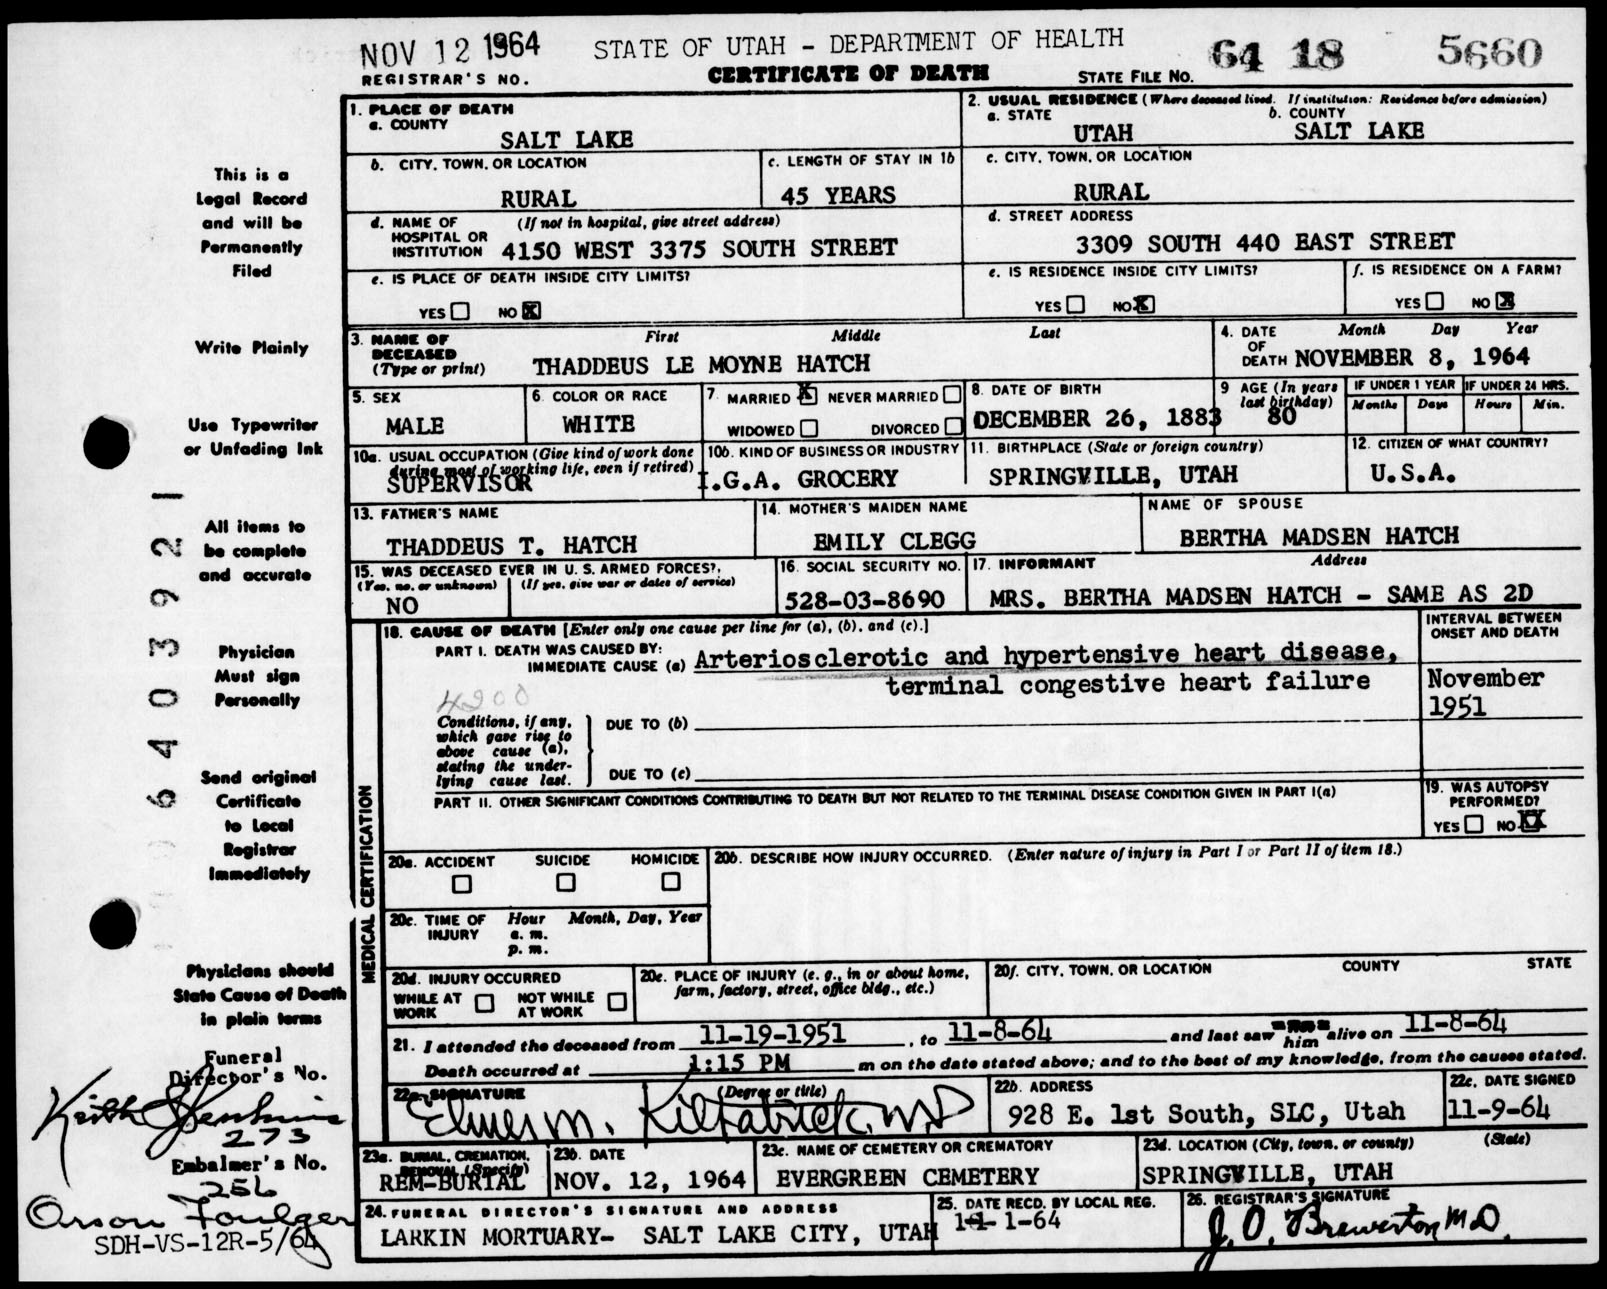 NOV 12 1964
STATE OF UTAH - DEPARTMENT OF HEALTH
64 18 5660
REGISTRAR'S NO.
CERTIFICATE OF DEATH
STATE FILE NO.
This is a
Legal Record
and will be
Permanently
Filed
Write Plainly
Use Typewriter
or Unfading Ink
All items to
be complete
and accurate
Physician
Must sign
Personally
Send original
Certificate
to Local
Registrar
Immediately
Physicians should
State Cause of Death
in plain terms
Funeral
Director's No.
Keith Jenkins
273
Embalmer's No.
256
Orson Foulger
SDH-VS-12R-5/64
6403921
1. PLACE OF DEATH
a. COUNTY
SALT LAKE
2. USUAL RESIDENCE (Where deceased lived. If institution: Residence before admission)
a. STATE b. COUNTY
UTAH SALT LAKE
b. CITY, TOWN, OR LOCATION
RURAL
c. LENGTH OF STAY IN 1b
45 YEARS
c. CITY, TOWN, OR LOCATION
RURAL
d. NAME OF HOSPITAL OR INSTITUTION (If not in hospital, give street address)
4150 WEST 3375 SOUTH STREET
d. STREET ADDRESS
3309 SOUTH 440 EAST STREET
e. IS PLACE OF DEATH INSIDE CITY LIMITS?
YES NO X
e. IS RESIDENCE INSIDE CITY LIMITS?
YES NO X
f. IS RESIDENCE ON A FARM?
YES NO X
3. NAME OF DECEASED (Type or print) First Middle Last
THADDEUS LE MOYNE HATCH
4. DATE OF DEATH Month Day Year
NOVEMBER 8, 1964
5. SEX
MALE
6. COLOR OR RACE
WHITE
7. MARRIED X NEVER MARRIED
WIDOWED DIVORCED
8. DATE OF BIRTH
DECEMBER 26, 1883
9 AGE (In years last birthday)
80
IF UNDER 1 YEAR IF UNDER 24 HRS.
Months Days Hours Min.
10a. USUAL OCCUPATION (Give kind of work done during most of working life, even if retired)
SUPERVISOR
10b. KIND OF BUSINESS OR INDUSTRY
I.G.A. GROCERY
11. BIRTHPLACE (State or foreign country)
SPRINGVILLE, UTAH
12. CITIZEN OF WHAT COUNTRY?
U.S.A.
13. FATHER'S NAME
THADDEUS T. HATCH
14. MOTHER'S MAIDEN NAME
EMILY CLEGG
NAME OF SPOUSE
BERTHA MADSEN HATCH
15. WAS DECEASED EVER IN U.S. ARMED FORCES?
(Yes, no, or unknown) (If yes, give war or dates of service)
NO
16. SOCIAL SECURITY NO.
528-03-8690
17. INFORMANT Address
MRS. BERTHA MADSEN HATCH - SAME AS 2D
MEDICAL CERTIFICATION
18. CAUSE OF DEATH [Enter only one cause per line for (a), (b), and (c).]
INTERVAL BETWEEN ONSET AND DEATH
PART I. DEATH WAS CAUSED BY:
IMMEDIATE CAUSE (a) Arteriosclerotic and hypertensive heart disease,
terminal congestive heart failure
November
1951
4200
Conditions, if any, which gave rise to above cause (a), stating the underlying cause last.
DUE TO (b)
DUE TO (c)
PART II. OTHER SIGNIFICANT CONDITIONS CONTRIBUTING TO DEATH BUT NOT RELATED TO THE TERMINAL DISEASE CONDITION GIVEN IN PART I(a)
19. WAS AUTOPSY PERFORMED?
YES NO XX
20a. ACCIDENT SUICIDE HOMICIDE
20b. DESCRIBE HOW INJURY OCCURRED. (Enter nature of injury in Part I or Part II of item 18.)
20c. TIME OF INJURY Hour Month, Day, Year
a. m.
p. m.
20d. INJURY OCCURRED
WHILE AT WORK NOT WHILE AT WORK
20e. PLACE OF INJURY (e. g., in or about home, farm, factory, street, office bldg., etc.)
20f. CITY, TOWN, OR LOCATION COUNTY STATE
21. I attended the deceased from 11-19-1951, to 11-8-64 and last saw him alive on 11-8-64
Death occurred at 1:15 PM m on the date stated above; and to the best of my knowledge, from the causes stated.
22a. SIGNATURE (Degree or title)
Elmer M. Kilpatrick, MD
22b. ADDRESS
928 E. 1st South, SLC, Utah
22c. DATE SIGNED
11-9-64
23a. BURIAL, CREMATION, REMOVAL (Specify)
REM-BURIAL
23b. DATE
NOV. 12, 1964
23c. NAME OF CEMETERY OR CREMATORY
EVERGREEN CEMETERY
23d. LOCATION (City, town, or county) (State)
SPRINGVILLE, UTAH
24. FUNERAL DIRECTOR'S SIGNATURE AND ADDRESS
LARKIN MORTUARY- SALT LAKE CITY, UTAH
25. DATE RECD. BY LOCAL REG.
26. REGISTRAR'S SIGNATURE
J. O. Brewerton MD.